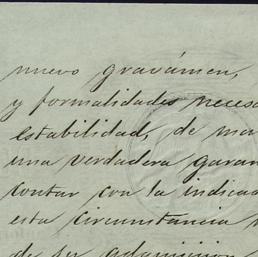 nuevo gravámen,
y formalidades neces
estabilidad, de
una verdadera garan
contar con la indica
esta circunstancia
de su